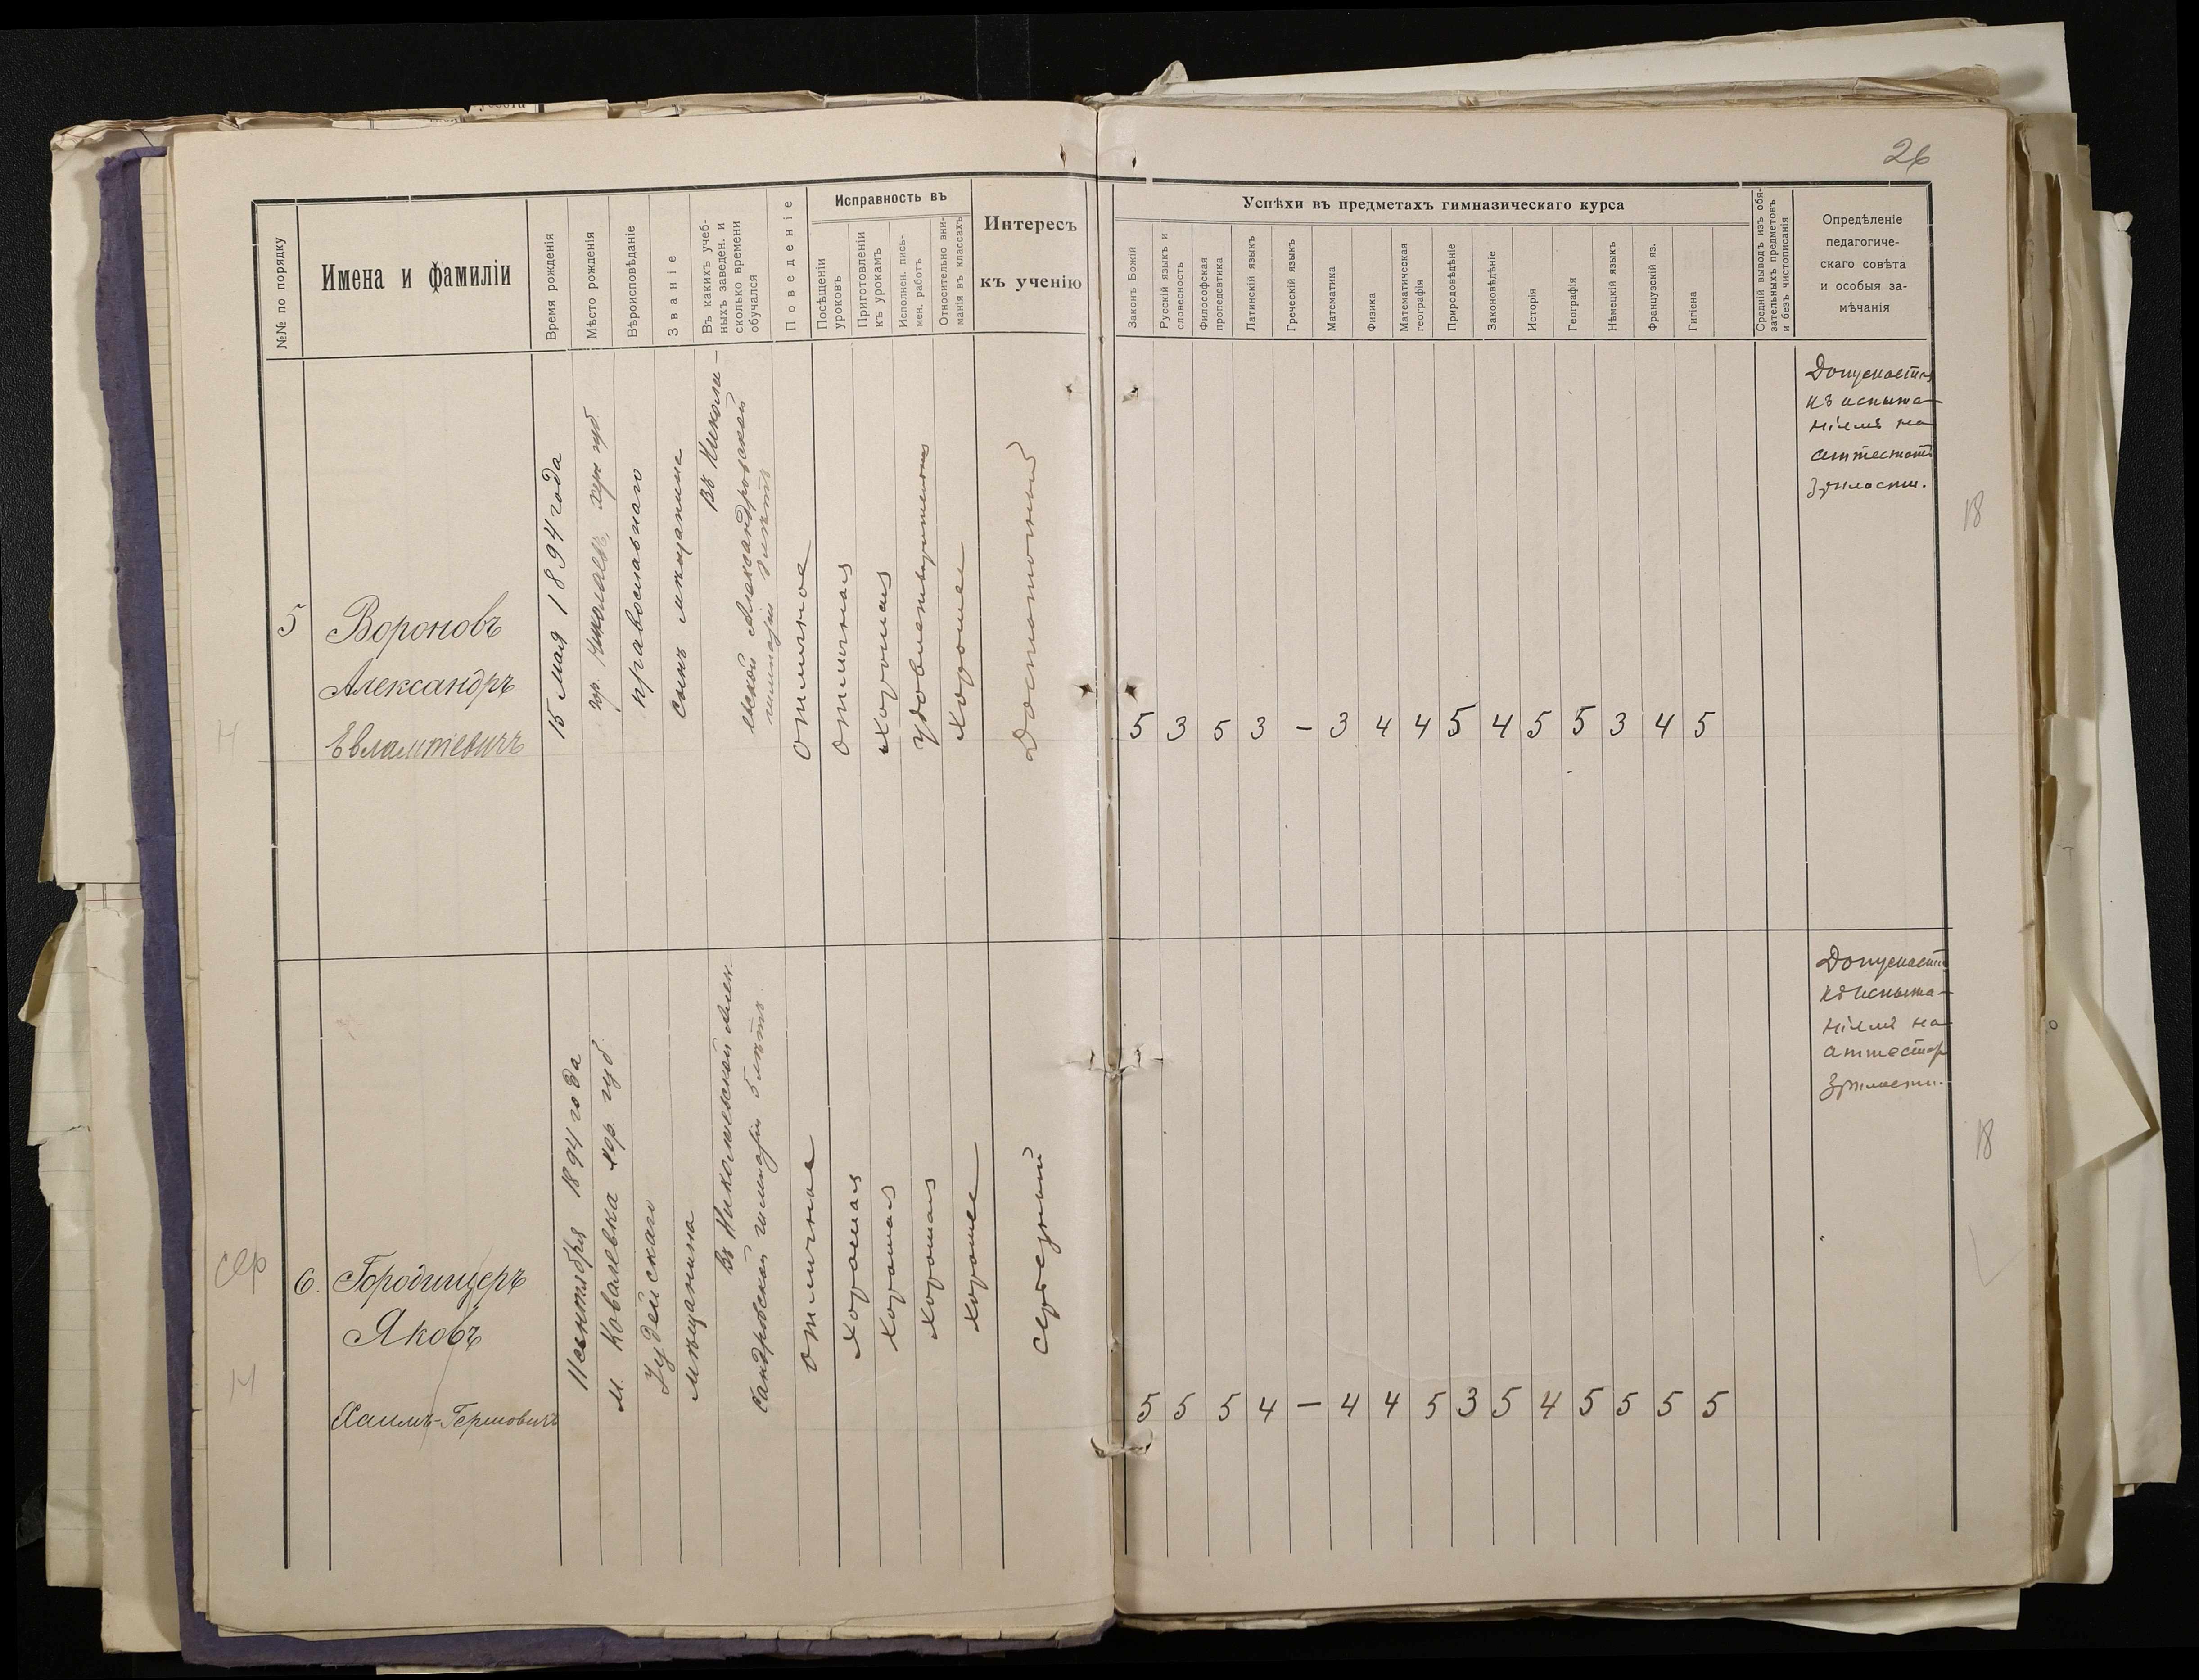 26
№№ по порядку
Имена и фамиліи
Время рожденія
Мѣсто рожденія
Вѣроисповѣданіе
Званіе
Въ какихъ учеб-
ныхъ заведен. и
сколько времени
обучался
Поведеніе
Исправность въ
Посѣщеніи
уроковъ
Приготовленіи
къ урокамъ
Исполнен. пись-
мен. работъ
Относительно вни-
манія въ классахъ
Интересъ
къ ученію
Успѣхи въ предметахъ гимназическаго курса
Законъ Божій
Русскій языкъ и
словесность
Философская
пропедевтика
Латинскій языкъ
Греческій языкъ
Математика
Физика
Математическая
географія
Природовѣдѣніе
Законовѣдѣніе
Исторія
Географія
Нѣмецкій языкъ
Французскій яз.
Гигіена
Средній выводъ изъ обя-
зательныхъ предметовъ
и безъ чистописанія
Опредѣленіе
педагогиче-
скаго совѣта
и особыя за-
мѣчанія
5
Вороновъ
Александръ
Евлампіевичъ
15 мая 1894 года
гор. Николаевъ, хер. губ
православнаго
сынъ мѣщанина
Въ Никола-
евской Александровской
гимназіи лѣтъ
отличное
отличная
хорошая
удовлетворительная
хорошее
Достаточный
5 3 5 3 – 3 4 4 5 4 5 5 3 4 5
Допускается
къ испыта-
ніямъ на
аттестатъ
зрѣлости.
18
Н
сер
6.
Городищеръ
Яковъ
Хаимъ-Гершовичъ
11 сентября 1894 года
м. Ковалевка хер. губ
Іудейскаго
мѣщанина
Въ Николаевской Алек-
сандровской гимназіи 5 лѣтъ.
отличное
хорошая
хорошая
хорошая
хорошее
Серьезный
5 5 5 4 – 4 4 5 3 5 4 5 5 5 5
Допускается
къ испыта-
ніямъ на
аттестатъ
зрѣлости.
18
Н